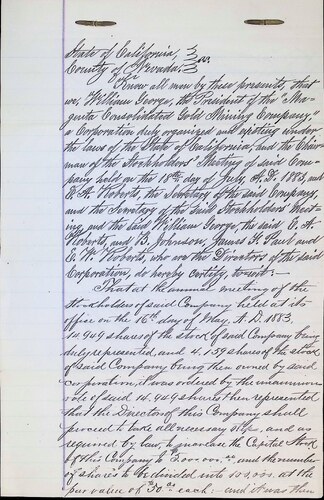 State of California,
County of Nevada, } ss.
Know all men by these presents, that
we, William George, the President of the "Ma-
guita Consolidated Gold Mining Company,"
a Corporation duly organized and existing under
the laws of the State of California, and the Chair-
man of the Stockholders' Meeting of said Com-
pany held on the 18th day of July, A.D. 1883, and
E. A. Roberts, the Secretary of the said Company,
and the Secretary of the said Stockholders Meet-
ing, and the said William George, the said E. A.
Roberts, and B. Johnson, James K. Paul and
E. W. Roberts, who are the Directors of the said
Corporation, do hereby certify, to wit:—
That at the annual meeting of the
Stockholders of said Company held at its
office on the 16th day of May, A.D. 1883,
14949 shares of the stock of said Company being
duly represented, and 4,139 shares of the stock
of said Company being then owned by said
corporation, it was ordered by the unanimous
vote of said 14949 shares then represented
that the Directors of this Company shall
proceed to take all necessary steps, and as
required by law, to increase the Capital Stock
of this Company to and the number
of shares to be divided into at the
par value of each and it was then